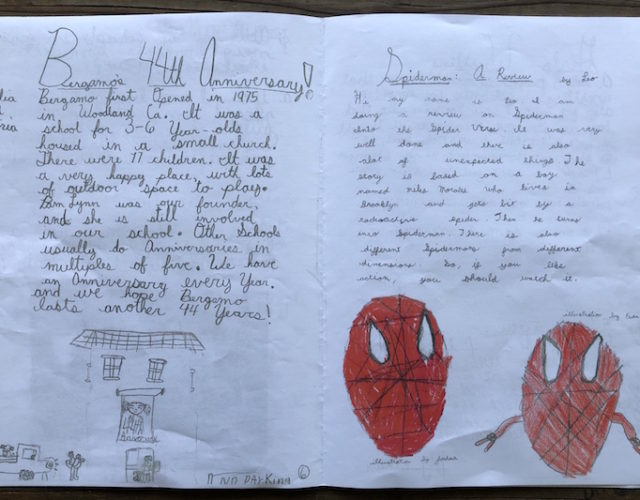 Bergamo's 44th Anniversary!
Bergamo first Opened in 1975
in Woodland Ca. It was a
school for 3-6 Year-olds
housed in a small church.
There were 17 children. It was
a very happy place, with lots
of outdoor space to play.
Pam Lynn was our founder,
and she is still involved
in our school. Other Schools
usually do Anniversaries in
multiples of five. We have
an Anniversary every Year.
and we hope Bergamo
lasts another 44 Years!
NO PARKING
6
Spiderman: A Review by Leo
Hi my name is Leo I am
doing a review on Spiderman
Into the Spider Verse. It was very
well done and there is also
alot of unexpected things The
story is based on a boy
named Miles Morales who lives in
Brooklyn and gets bit by a
radioactive spider. Then he turns
into Spiderman. There is also
different Spidermans from different
dimensions So, if you like
action, you should watch it.
illustration by
illustration by